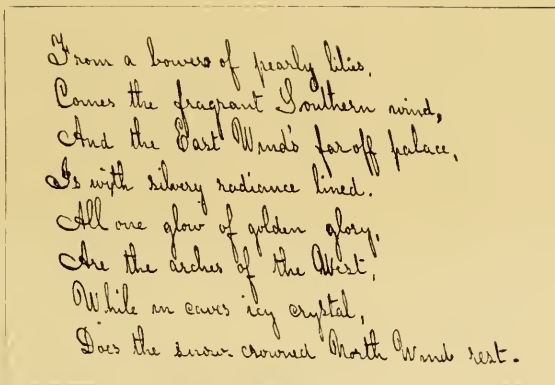 From a bower of pearly lilies,
Comes the fragrant Southern wind,
And the East Wind's far-off palace,
Is with silvery radiance lined.
All one glow of golden glory,
Are the arches of the West,
While in caves icy crystal,
Does the snow-crowned North Wind rest.